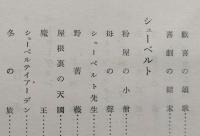 歓喜の頌歌
喜劇の結末
シューベルト
粉屋の小僧
母の聲
シューベルト先生
野薔薇
屋根裏の天國
魔王
シューベルテイアーデン
冬の旅